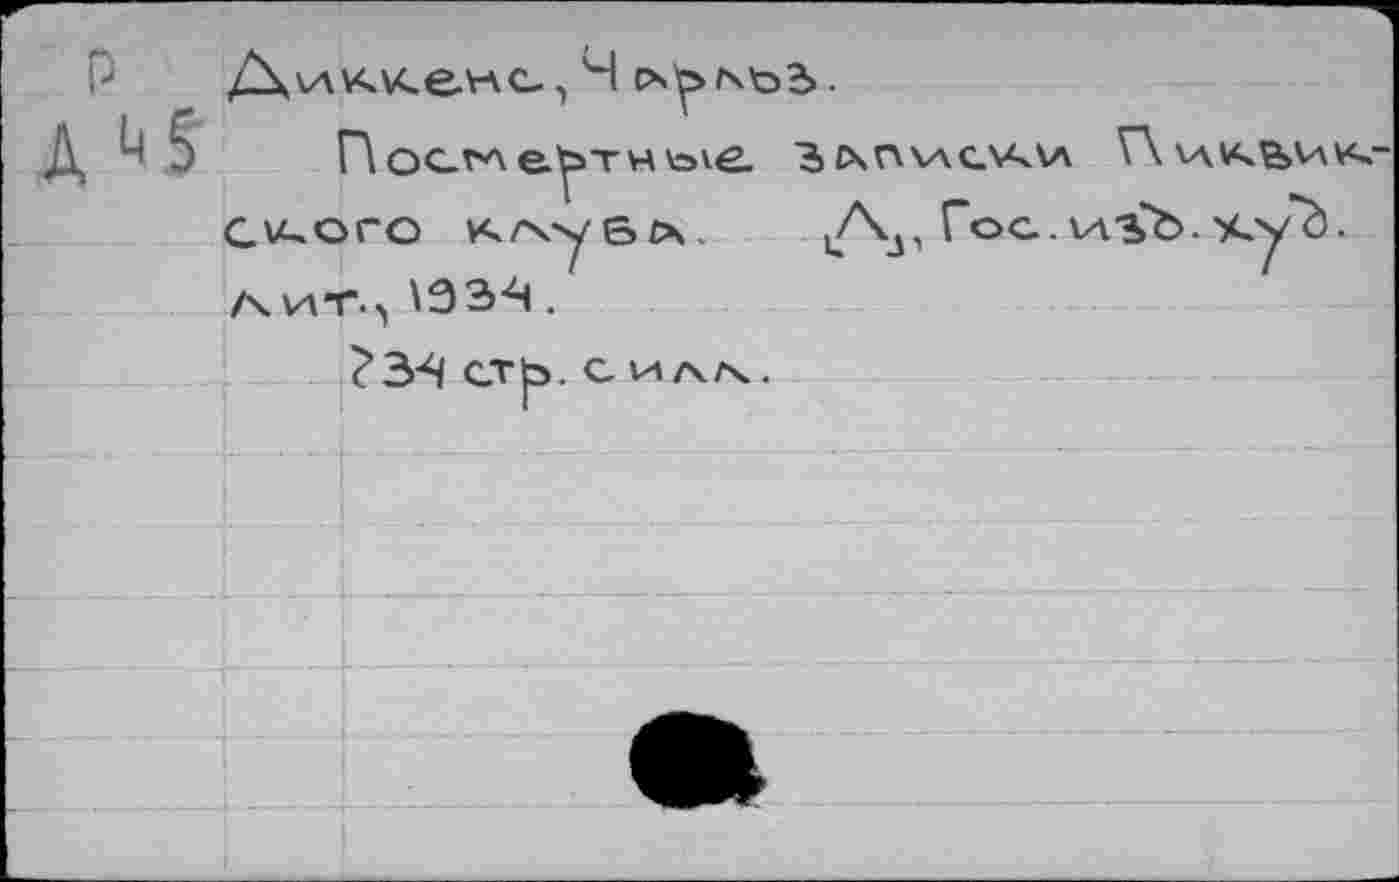 Р Диккенс, Чарльз.
Д 45 Посмертные записки Пиквик-
ского клуба. Л., Гос. изд. худ.
лит., 1934.
734 стр. с илл.